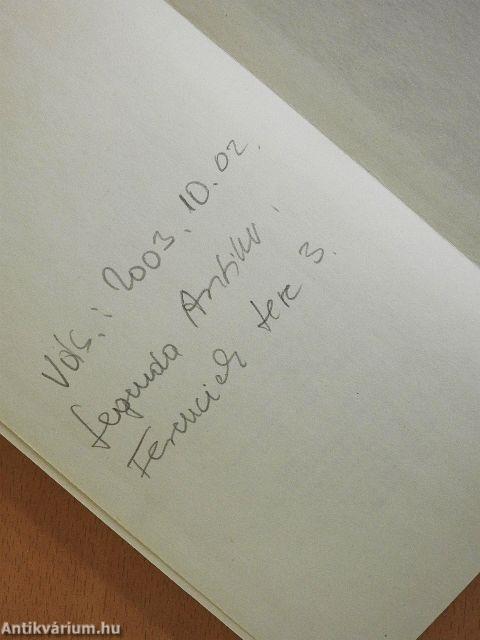 Vás.: 2003. 10. 02.
Legenda Antikv.
Ferenciek tere 3.
Antikvárium.hu